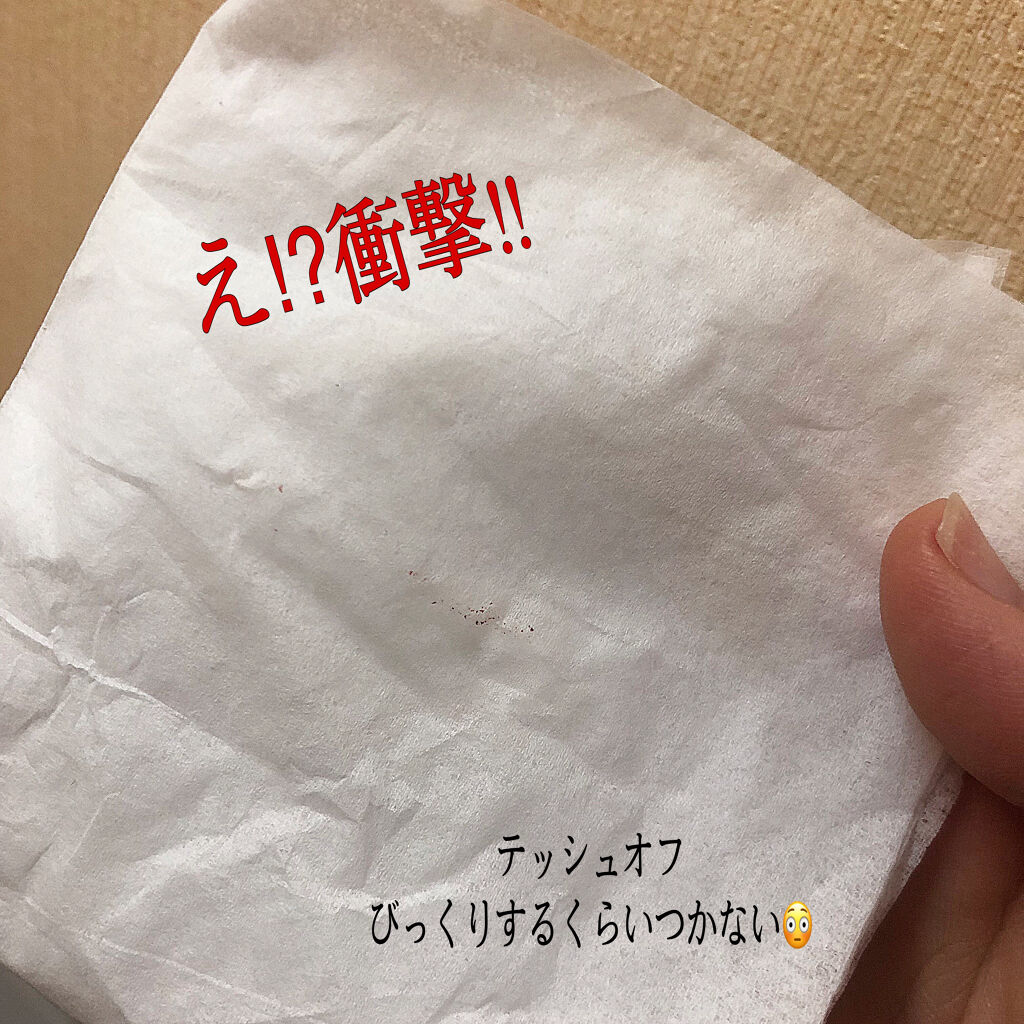 え!?衝撃!!
テッシュオフ
びっくりするくらいつかない😳